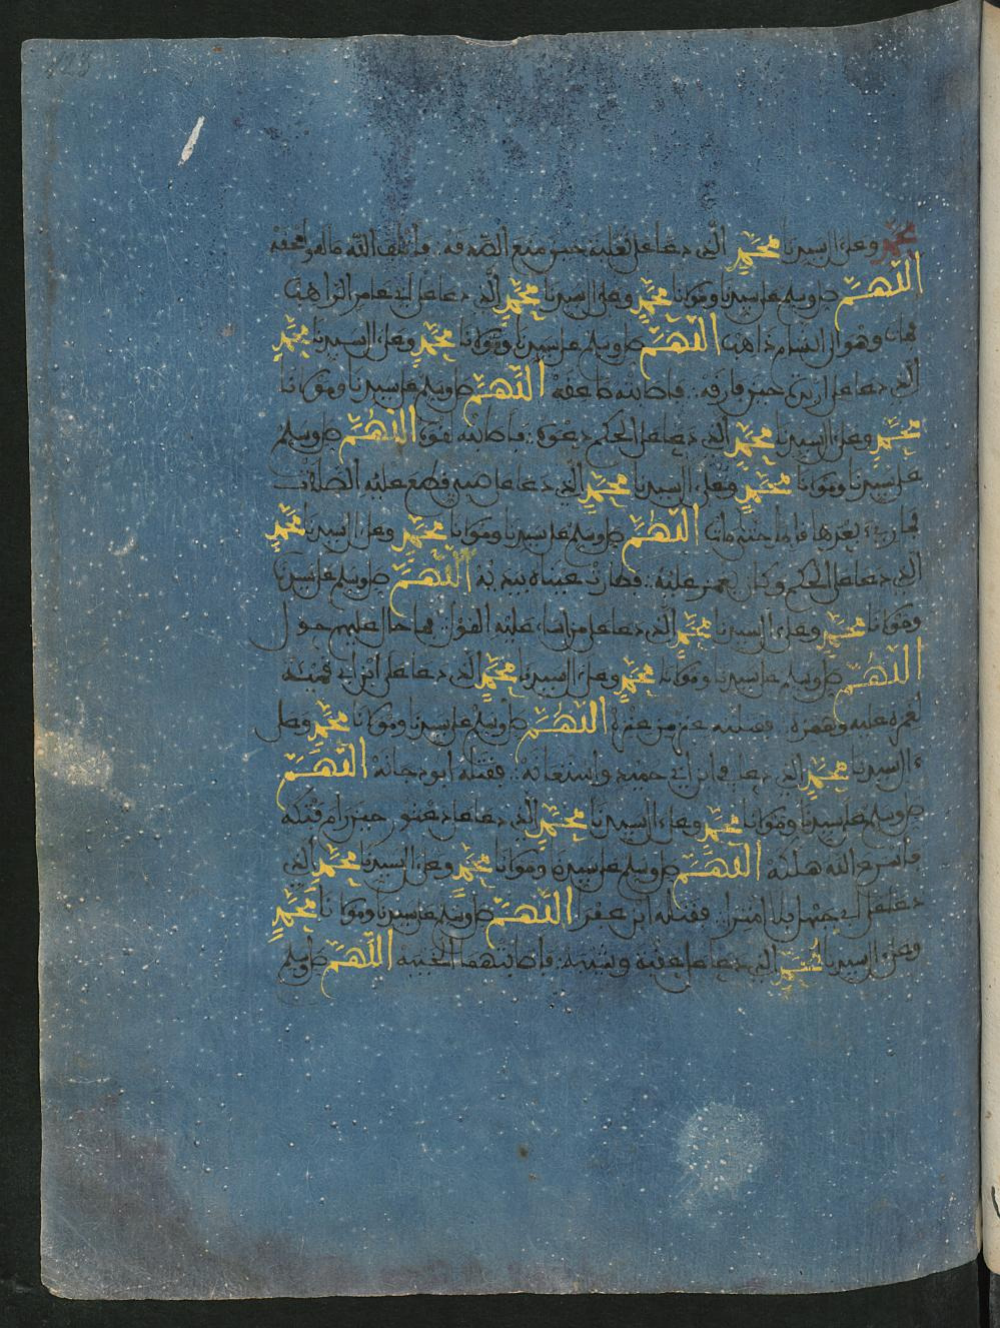 محمد وعلى ءال سيدنا محمد الذي دعا على ثعلبة حين منع الصدقة فأتلف الله ماله
اللهم صل وسلم على سيدنا ومولانا محمد وعلى ءال سيدنا محمد الذي دعا على أبي عامر الراهب
فمات وهو إلى الشام ذاهب اللهم صل وسلم على سيدنا ومولانا محمد وعلى ءال سيدنا محمد
الذي دعا على أربد حين فارقه فأصابته صاعقة اللهم صل وسلم على سيدنا ومولانا
محمد وعلى ءال سيدنا محمد الذي دعا على الحكم دعوة فأصابته لقوة اللهم صل وسلم
على سيدنا ومولانا محمد وعلى ءال سيدنا محمد الذي دعا على صبي قطع عليه الصلاة
بعدها اللهم صل وسلم على سيدنا ومولانا محمد وعلى ءال سيدنا محمد
الذي دعا على الحكم وكان يغمز عليه فصارت عيناه اللهم صل وسلم على سيدنا
ومولانا محمد وعلى ءال سيدنا محمد الذي دعا على من أساء عليه القول فما حال عليهم حول
اللهم صل وسلم على سيدنا ومولانا محمد وعلى ءال سيدنا محمد الذي دعا على ابن أبي قميئة
اللهم صل وسلم على سيدنا ومولانا محمد وعلى
ءال سيدنا محمد الذي دعا في ابن أبي حميد واستغاثه فقتله أبو دجانة اللهم
صل وسلم على سيدنا ومولانا محمد وعلى ءال سيدنا محمد الذي دعا على دعثور حين رام قتله
الله اللهم صل وسلم على سيدنا ومولانا محمد وعلى ءال سيدنا محمد الذي
دعا على أبي جهل فقتله ابن عفرا اللهم صل وسلم على سيدنا ومولانا محمد
وعلى ءال سيدنا محمد الذي دعا على عقبة وشيبة فأصابتهما الخيبة اللهم صل وسلم